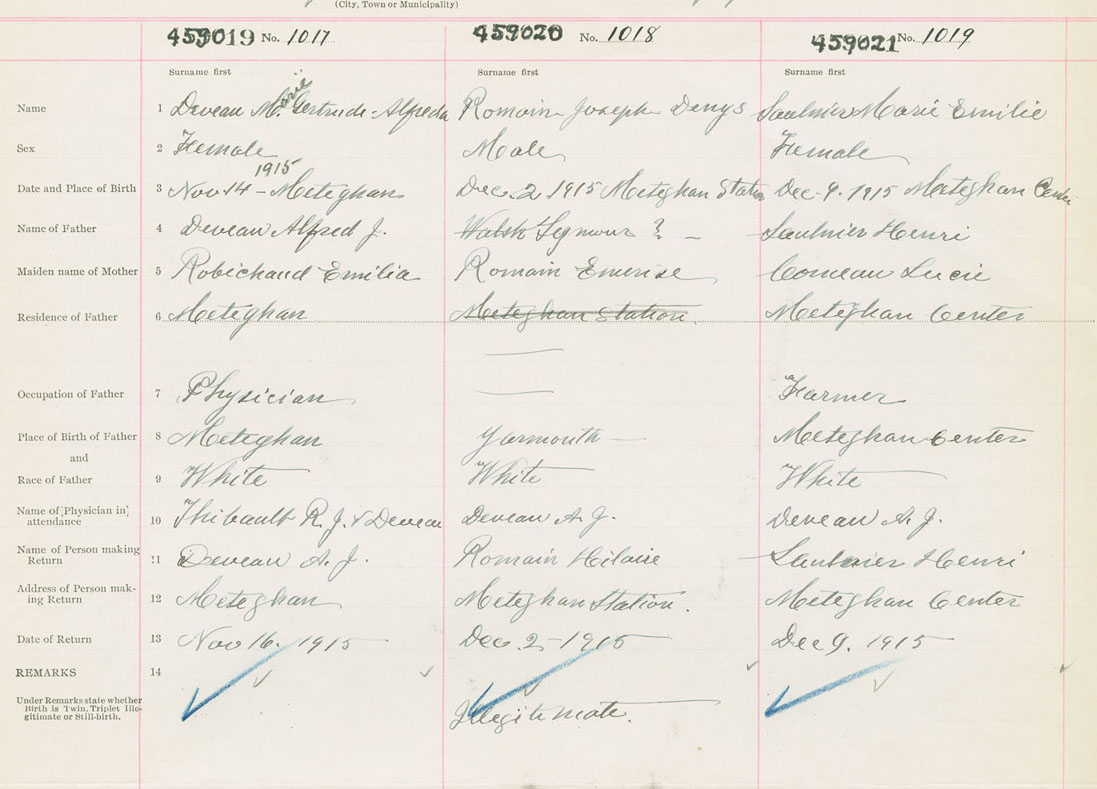 (City, Town or Municipality)
459019 No. 1017 459020 No. 1018 459021 No. 1019
Surname first Surname first Surname first
Name 1 Deveau M. Marie Gertrude Alfreda Romain Joseph Denys Saulnier Marie Emilie
Sex 2 Female Male Female
1915
Date and Place of Birth 3 Nov 14 - Meteghan Dec. 2 1915 Meteghan Station Dec. 9. 1915 Meteghan Center
Name of Father 4 Deveau Alfred J. Walsh Seymour ? - Saulnier Henri
Maiden name of Mother 5 Robichaud Emilia Romain Emerise Comeau Lucie
Residence of Father 6 Meteghan Meteghan Station. Meteghan Center
Occupation of Father 7 Physician — Farmer
Place of Birth of Father 8 Meteghan Yarmouth — Meteghan Center
and
Race of Father 9 White White White
Name of [Physician in]
attendance 10 Thibault R. J. & Deveau Deveau A. J. Deveau A. J.
Name of Person making
Return 11 Deveau A. J. Romain Hilaire Saulnier Henri
Address of Person mak-
ing Return 12 Meteghan Meteghan Station. Meteghan Center
Date of Return 13 Nov 16. 1915 Dec 2 - 1915 Dec 9. 1915
REMARKS 14
Under Remarks state whether
Birth is Twin, Triplet Ille-
gitimate or Still-birth.
Illegitimate.